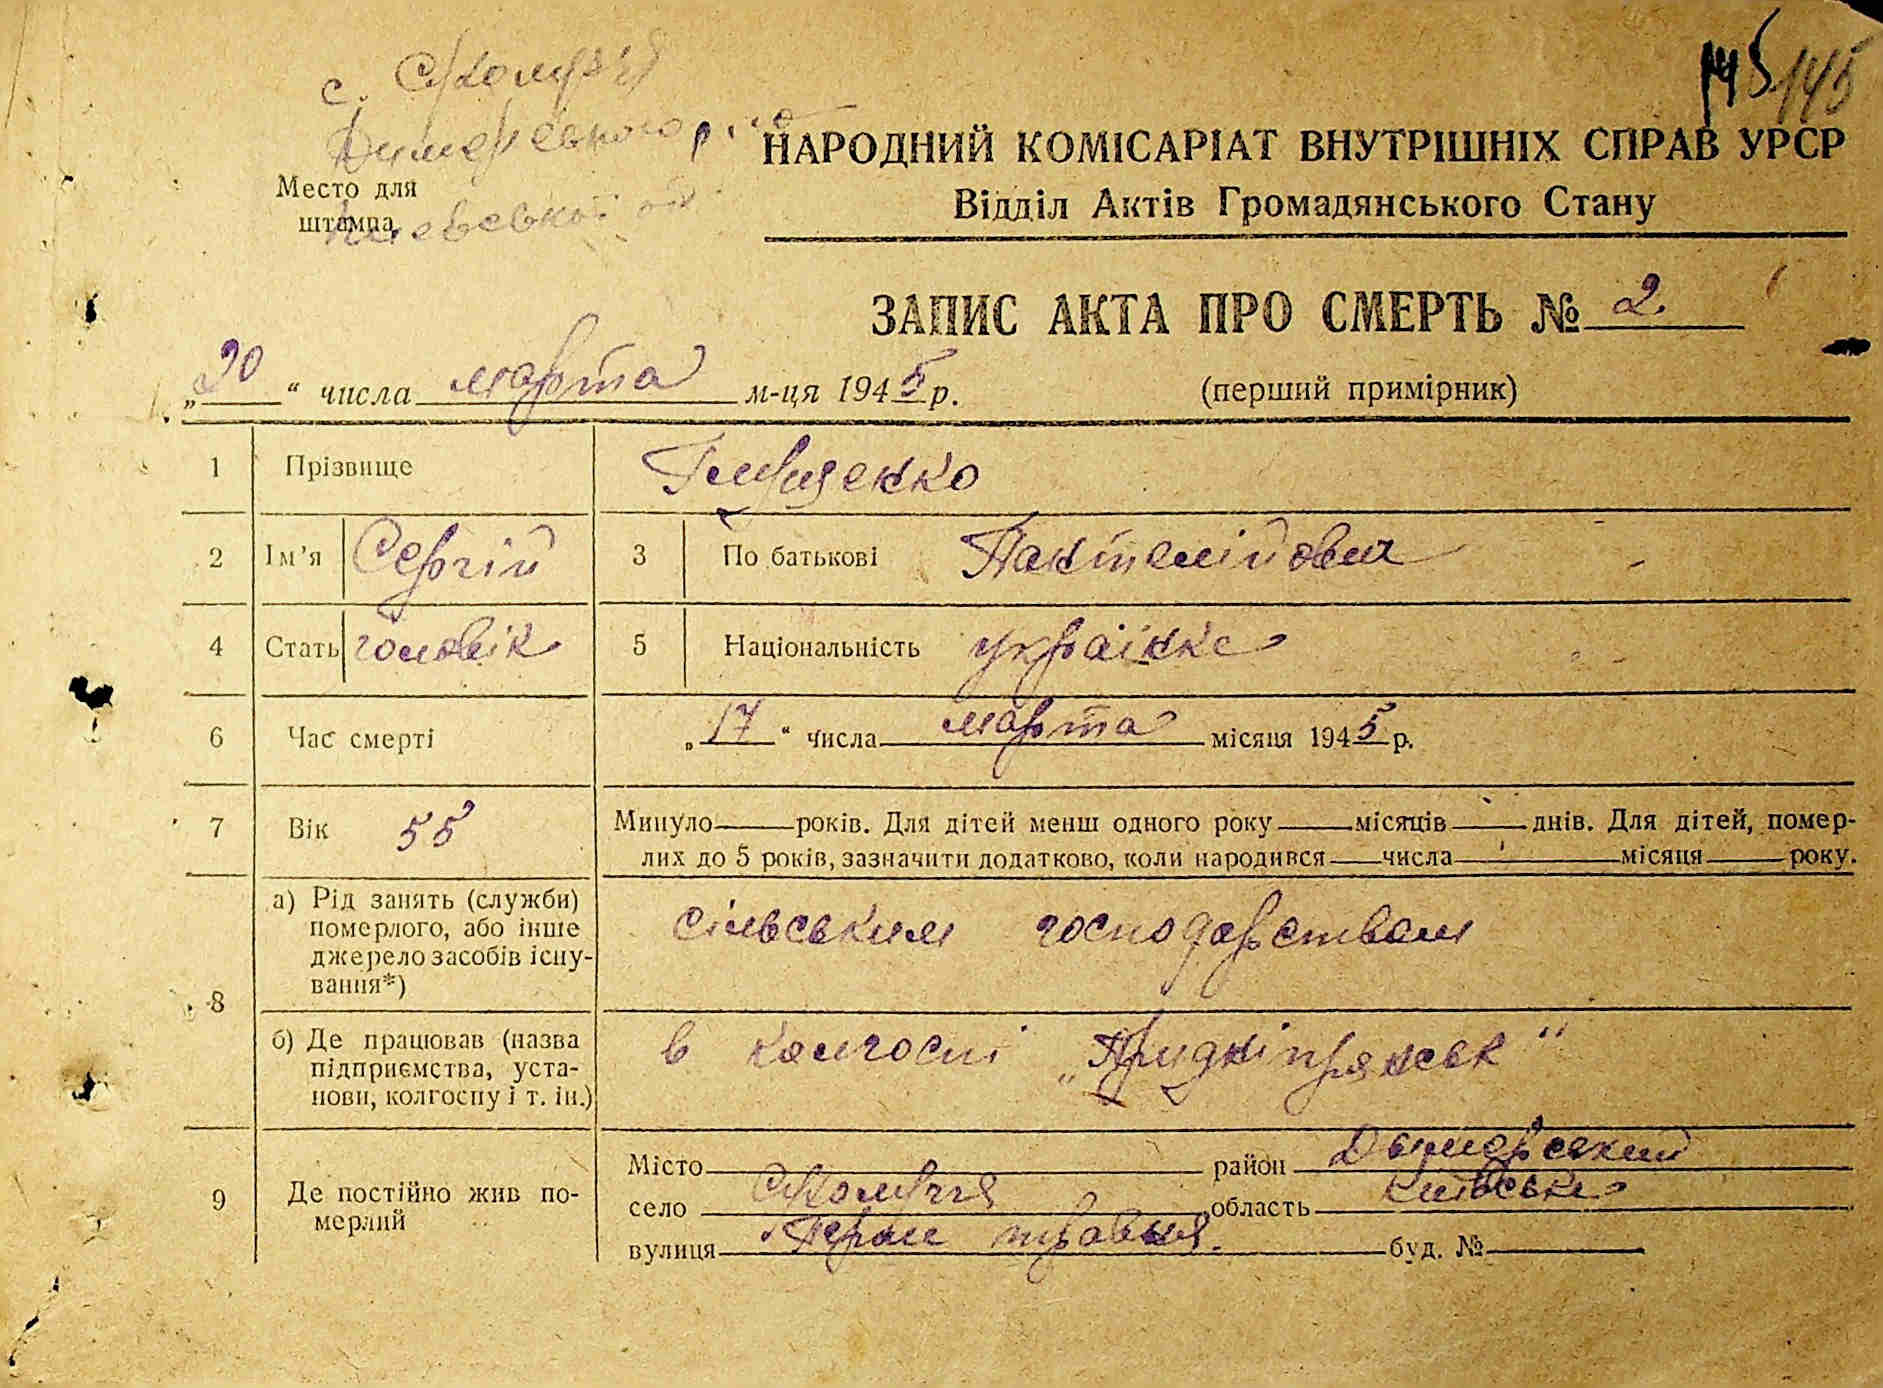 145 145
с.
Димерського р
Место для
штампа
НАРОДНИЙ КОМІСАРІАТ ВНУТРІШНІХ СПРАВ УРСР
Відділ Актів Громадянського Стану
ЗАПИС АКТА ПРО СМЕРТЬ № 2
„20“ числа марта м-ця 1945 р.
(перший примірник)
1 Прізвище
2 Ім’я Сергій 3 По батькові Пантелійович
4 Стать чоловік 5 Національність українке
6 Час смерті „17“ числа марта місяця 1945 р.
7 Вік 55 Минуло років. Для дітей менш одного року місяців днів. Для дітей, помер-
лих до 5 років, зазначити додатково, коли народився числа місяця року.
8 а) Рід занять (служби)
померлого, або інше
джерело засобів існу-
вання*)
сільським господарством
б) Де працював (назва
підприємства, уста-
нови, колгоспу і т. ін.)
в колгоспі „Придніпрянськ“
9 Де постійно жив по-
мерлий
Місто район Дымерський
село область Київське
вулиця Перше травня. буд. №